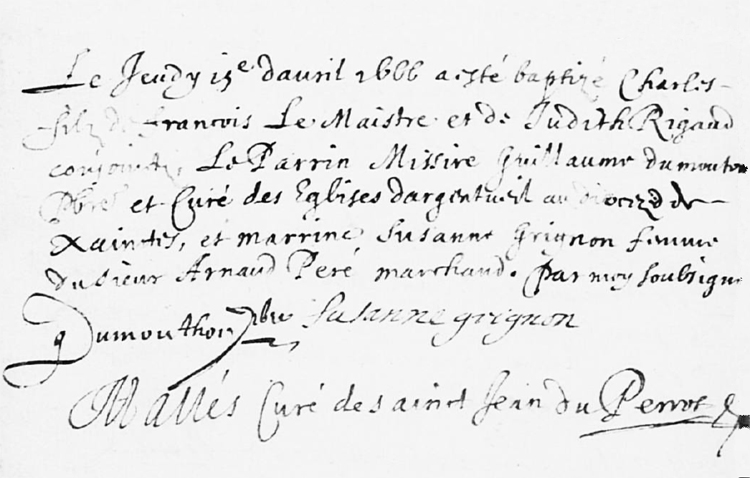 Le Jeudy 15e dauril 1666 a esté baptizé Charles
filz de francois Le Maistre et de Judith Rigaud
conjoincts, Le Parrin Missire Guillaume dumouton
Pbre et Curé des Eglises dargentueil au diocèze de
Xainctes, et marrine Susanne Grignon femme
du sieur Arnaud Peré marchand. Par moy soubsigne
Dumouthon pbre Susanne grignon
Mallés Curé de sainct Jean du Perrot